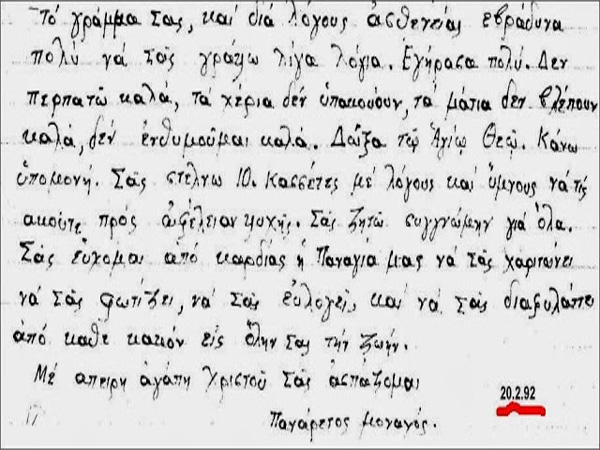 Τό γράμμα Σας, καί διά λόγους ἀσθενείας εβράδυνα
πολύ νά Σᾶς γράψω λίγα λόγια. Εγήρασα πολύ. Δεν
περπατῶ καλά, τά χέρια δέν ὑπακούουν, τά μάτια δεν βλέπουν
καλά, δέν ἐνθυμοῦμαι καλά. Δόξα τῷ Ἁγίῳ Θεῷ. Κάνω
ὑπομονή. Σᾶς στέλνω 10. Κασσέτες μέ λόγους καί ὕμνους νά τίς
ακούτε πρός ὠφέλειαν ψυχῆς. Σᾶς ζητῶ συγγνώμην γιά ὅλα.
Σᾶς εὔχομαι από καρδίας ἡ Παναγία μας νά Σᾶς χαριτώνει
νά Σᾶς φωτίζει, νά Σᾶς εὐλογεῖ, καί νά Σᾶς διαφυλάττει
ἀπό κάθε κακόν εἰς ὅλην Σας τήν ζωήν.
Μέ απειρη ἀγάπη Χριστοῦ Σᾶς ἀσπάζομαι
20.2.92
Πανάρετος μοναχός.